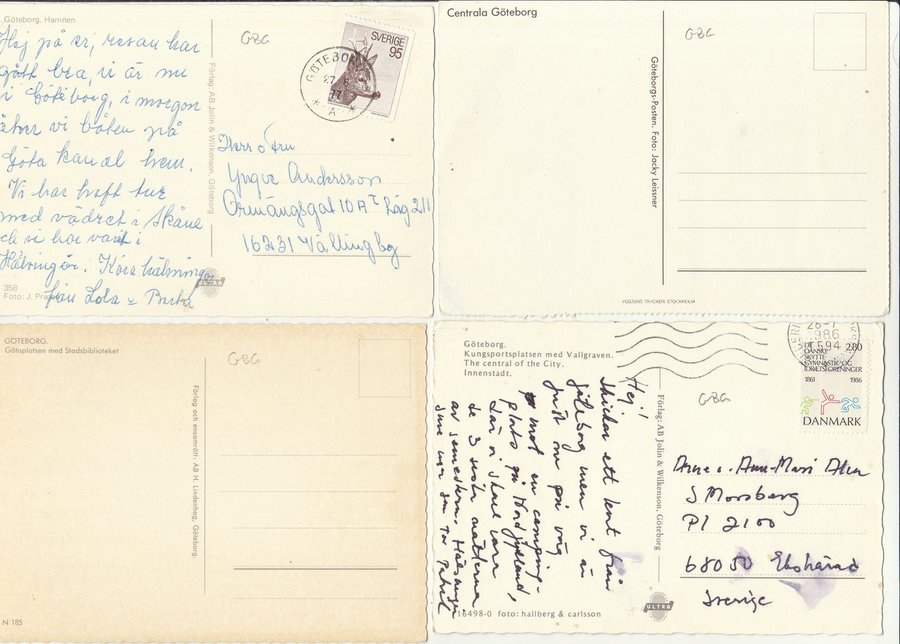 Göteborg, Hamnen
GBG
Hej på er, resan har
gått bra, vi är nu
i Göteborg, i morgon
åker vi båten på
Göta kanal hem.
Vi har haft tur
med vädret i Skåne
och vi har varit i
Hälsingör. Kära hälsningar
från Lola & Bertil
358
Foto: J.
Förlag AB John & Wilkenson, Göteborg
ULTRA
SVERIGE
95
GÖTEBORG
27. 6.
77
A
Herr o Fru
Yngve Andersson
Ormängsgat 10A Låg 211
16231 Vällingby
Centrala Göteborg
GBG
Göteborgs-Posten. Foto: Jacky Leissner
POSTENS TRYCKERI STOCKHOLM
GÖTEBORG.
Götaplatsen med Stadsbiblioteket
GBG
Förlag och ensamrätt: AB H. Lindenhag, Göteborg.
N 185
Göteborg.
Kungsportsplatsen med Vallgraven.
The central of the City.
Innenstadt.
GBG
Hej!
Skickar ett kort från
Göteborg men vi är
just nu på väg
mot en camping-
plats på Nordjylland,
där vi skall vara
de 3 sista nätterna
av semestern. Hälsningar
Förlag: AB John & Wilkenson, Göteborg
ULTRA
16498-0 foto: hallberg & carlsson
1986
DE
DANSKE
SKYTTE
GYMNASTIK- OG
IDRÆTSFORENINGER
2.80
1861 1986
DANMARK
Arne o. Ann-Mari
S Mossberg
Pl 2100
68050 Ekshärad
Sverige